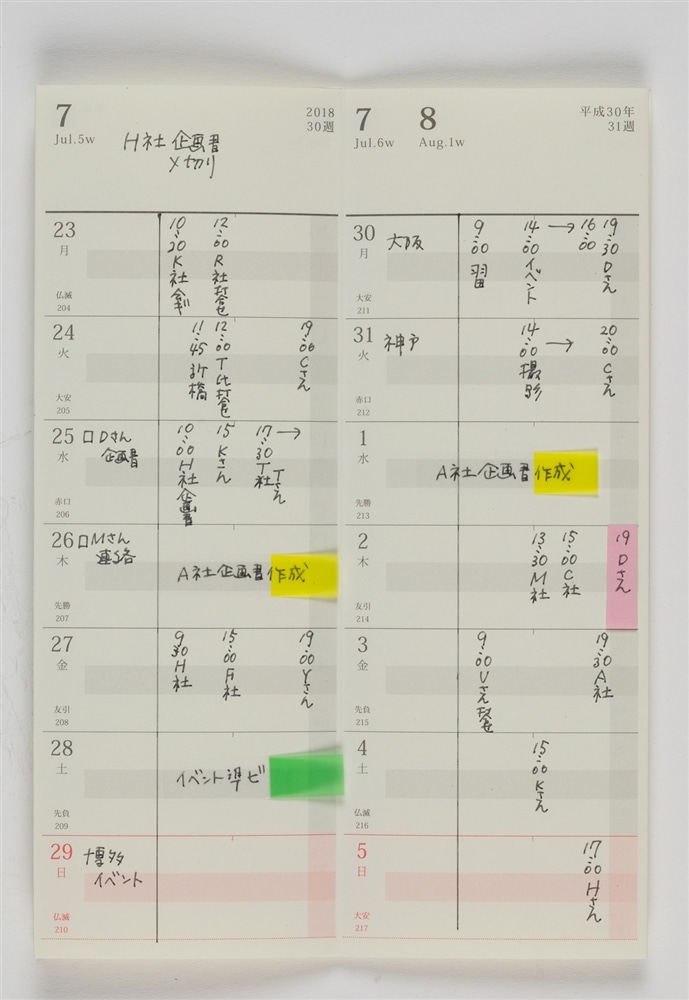 7
Jul.5w
2018
30週
H社 企画書
〆切り
23
月
仏滅
204
10:20 K社
12:00 R社打合せ
24
火
大安
205
11:45 新橋
12:00 T社打合せ
19:00 Cさん
25
水
赤口
206
□Dさん
企画書
10:00 H社企画書
15 Kさん
17:30→
T社
Tさん
26
木
先勝
207
□Mさん
連絡
A社企画書作成
27
金
友引
208
9:30 H社
15:00 F社
19:00 Yさん
28
土
先負
209
イベント準ビ
29
日
仏滅
210
博多
イベント
7
Jul.6w
8
Aug.1w
平成30年
31週
30
月
大安
211
大阪
9:00
14:00→16:00
イベント
19:30 Dさん
31
火
赤口
212
神戸
14:00→
撮影
20:00 Cさん
1
水
先勝
213
A社企画書作成
2
木
友引
214
13:30 M社
15:00 C社
19 Dさん
3
金
先負
215
9:00 Uさん
19:30 A社
4
土
仏滅
216
15:00 Kさん
5
日
大安
217
17:00 Hさん